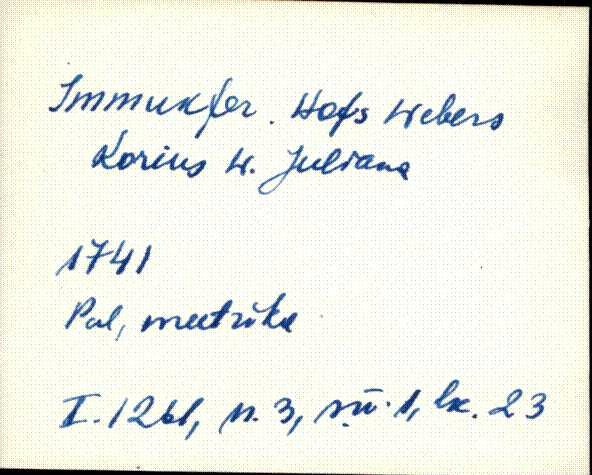 Immukfer. Hofs Webers
Korius W. Juliana
1741
Pal, meetrika
I. 1261, n. 3, sü. 1, lk. 23